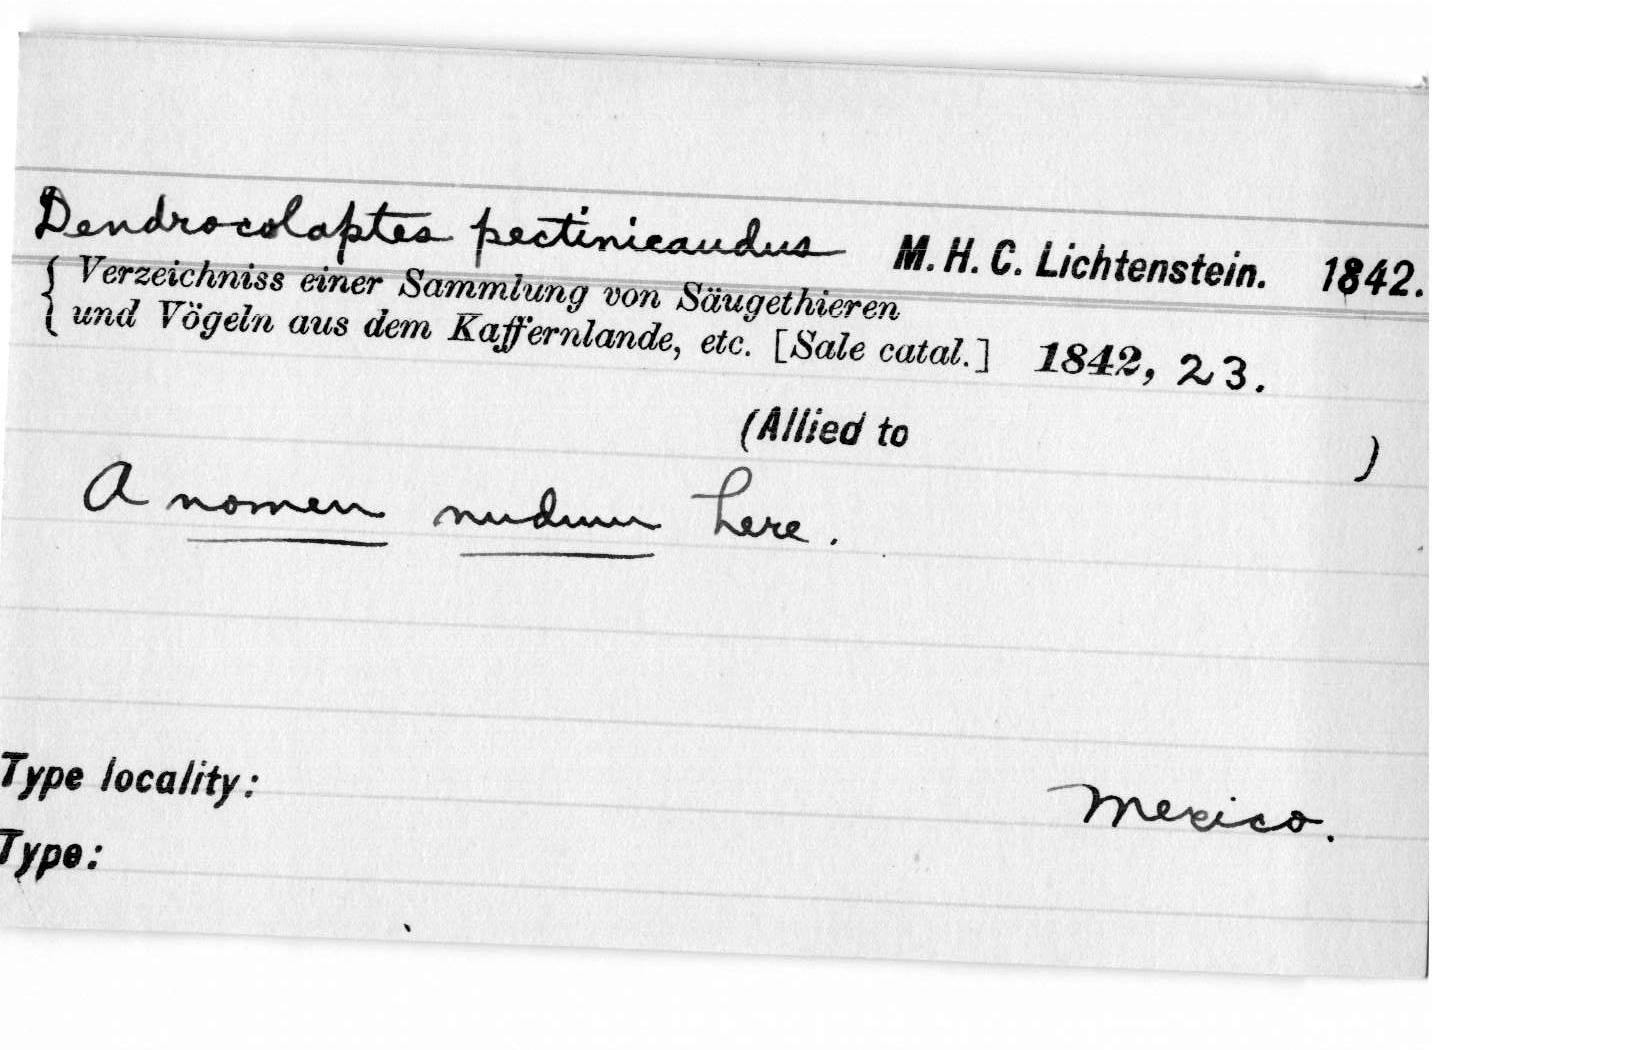 Dendrocolaptes pectinicaudus M. H. C. Lichtenstein. 1842.
Verzeichniss einer Sammlung von Säugethieren
und Vögeln aus dem Kaffernlande, etc. [Sale catal.] 1842, 23.
(Allied to )
A nomen nudum here.
Type locality: Mexico.
Type: